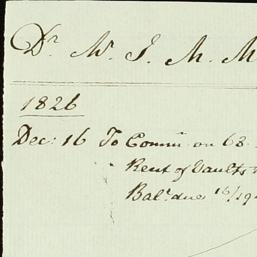 Dr. Mr. J. M. M
1826
Dec: 16 To Commn on 63
Rent of Vaults
Bale. due 16/19